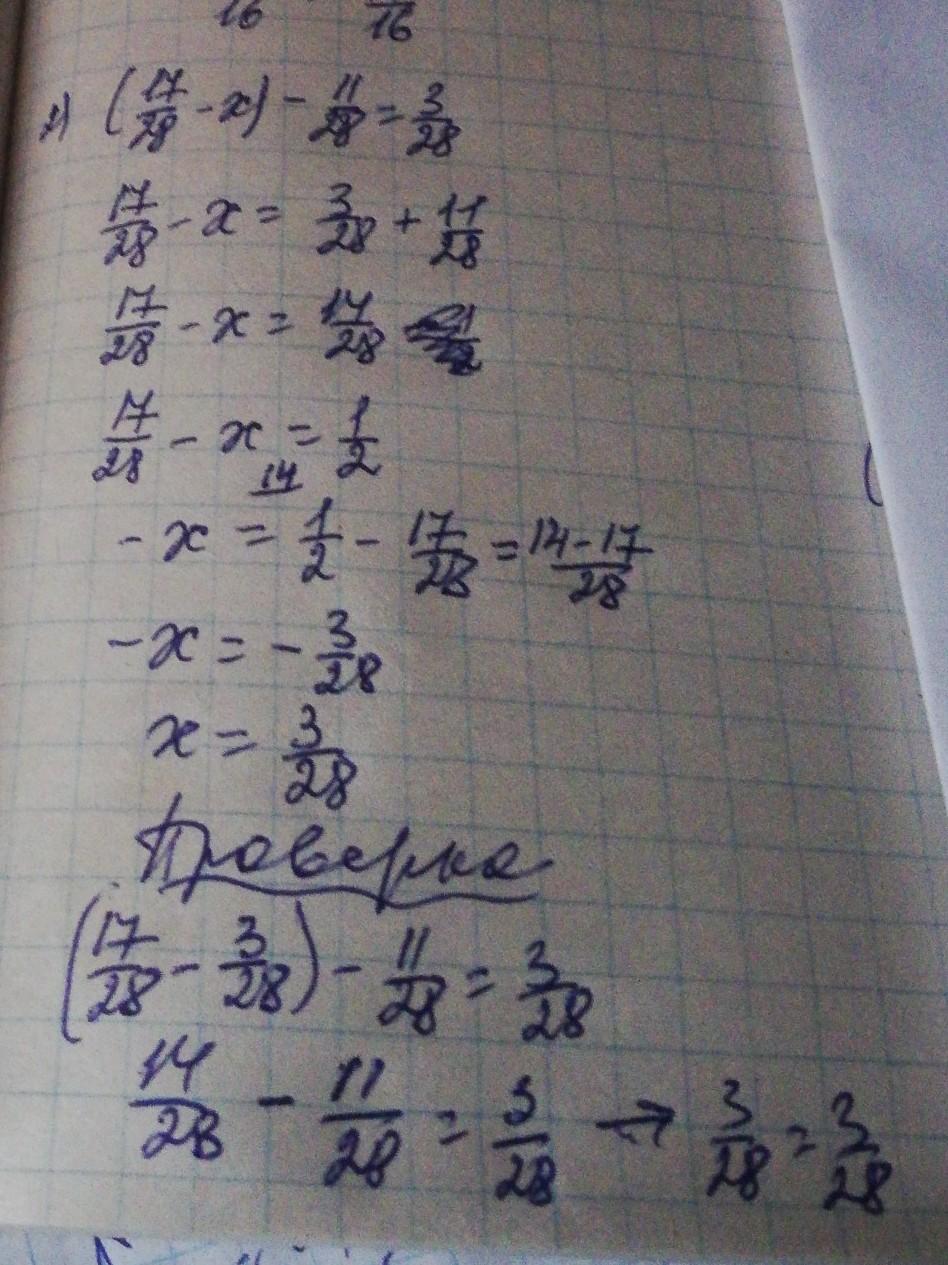 16 16
(17/28 - x) - 11/28 = 3/28
17/28 - x = 3/28 + 11/28
17/28 - x = 14/28
17/28 - x = 1/2
14
-x = 1/2 - 17/28 = 14-17/28
-x = -3/28
x = 3/28
Проверка
(17/28 - 3/28) - 11/28 = 3/28
14/28 - 11/28 = 3/28 → 3/28 = 3/28